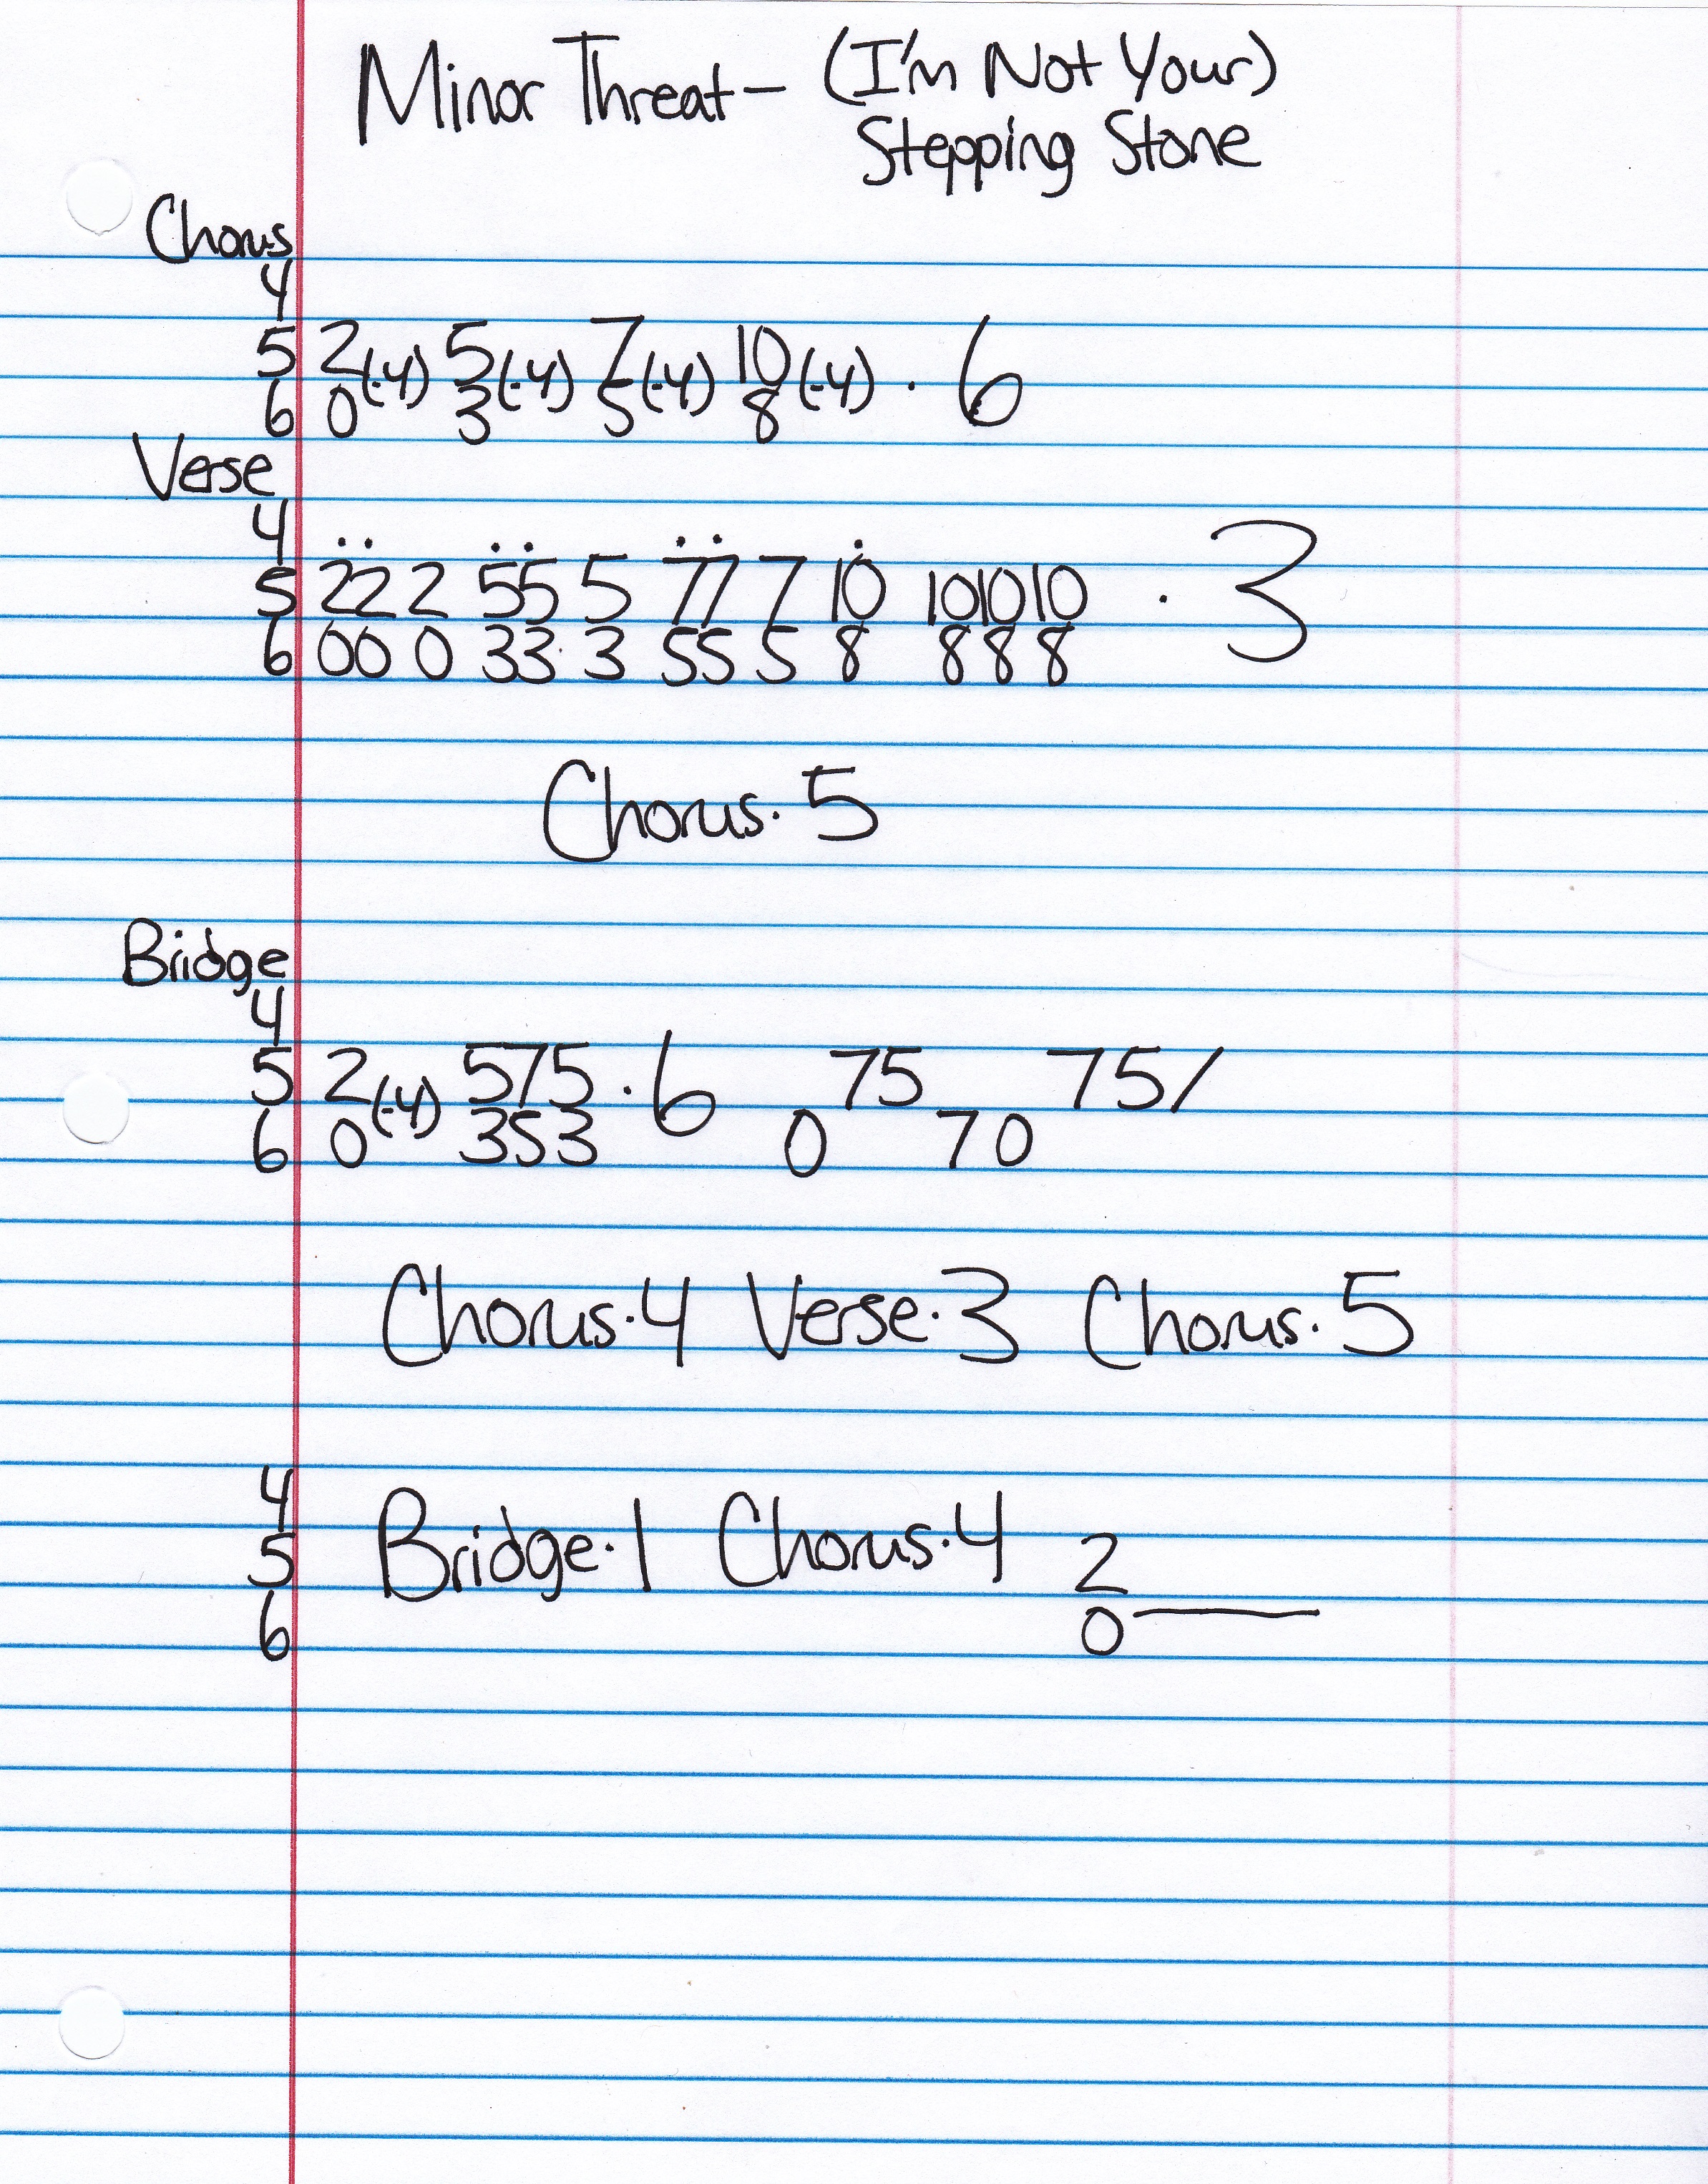 Minor Threat – (I'm Not Your)
Stepping Stone
Chorus
4
5 2(·4) 5(·4) 7(·4) 10(·4) · 6
6 0 3 5 8
Verse
4 .. .. .. .
5 22 2 55 5 77 7 10 101010 · 3
6 00 0 33 3 55 5 8 8 8 8
Chorus·5
Bridge
4
5 2(·4) 575 ·6 75 75/
6 0 353 0 70
Chorus·4 Verse·3 Chorus·5
4
5 Bridge·1 Chorus·4 2
6 0—